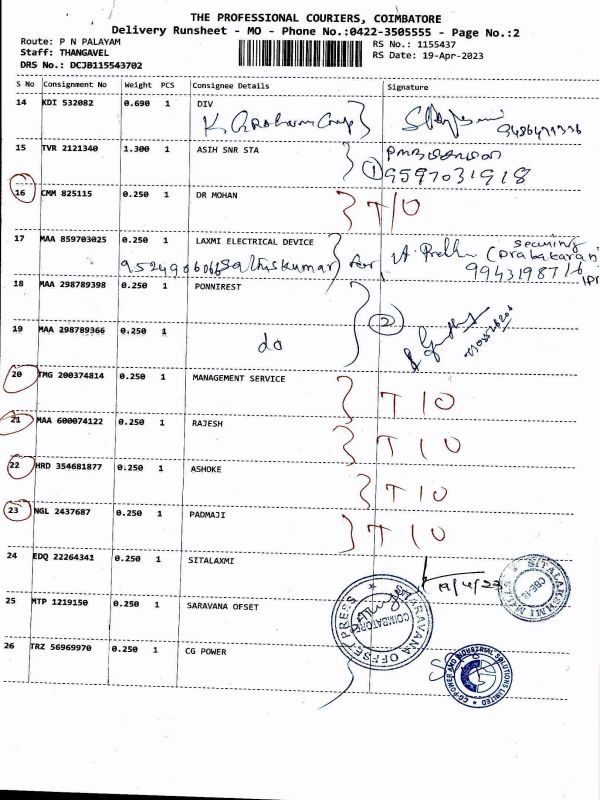 THE PROFESSIONAL COURIERS, COIMBATORE
Delivery Runsheet - MO - Phone No.:0422-3505555 - Page No.:2
Route: P N PALAYAM
RS No.: 1155437
Staff: THANGAVEL
RS Date: 19-Apr-2023
DRS No.: DCJB115543702
S No Consignment No Weight PCS Consignee Details Signature
14 KDI 532082 0.690 1 DIV
15 TVR 2121340 1.300 1 ASIH SNR STA
① 9597031918
16 CMM 825115 0.250 1 DR MOHAN T/O
17 MAA 859703025 0.250 1 LAXMI ELECTRICAL DEVICE
9943198716
18 MAA 298789398 0.250 1 PONNIREST
②
19 MAA 298789366 0.250 1 do
20 TMG 200374814 0.250 1 MANAGEMENT SERVICE T/O
21 MAA 600074122 0.250 1 RAJESH T/O
22 HRD 354681877 0.250 1 ASHOKE T/O
23 NGL 2437687 0.250 1 PADMAJI T/O
24 EDQ 22264341 0.250 1 SITALAXMI
19/4/23
SITALAKSHMI MILLS
25 MTP 1219150 0.250 1 SARAVANA OFSET
SARAVANA OFFSET PRESS
COIMBATORE
26 TRZ 56969970 0.250 1 CG POWER
CG POWER AND INDUSTRIAL SOLUTIONS LIMITED